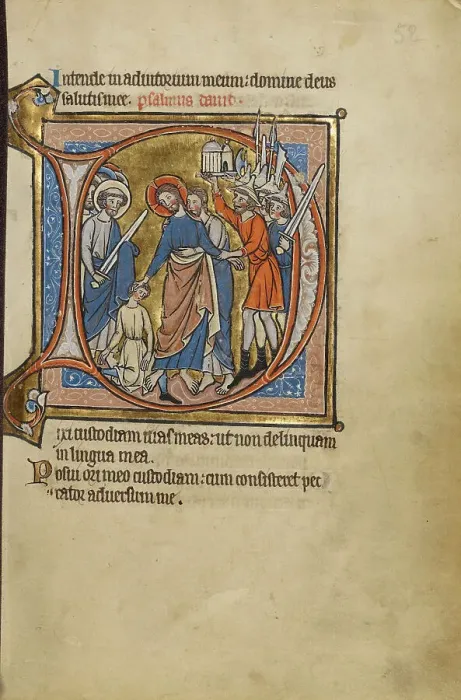 52
Intende in adiutorium meum: domine deus
salutis mee. psalmus dauid.
Dixi custodiam uias meas: ut non delinquam
in lingua mea.
Posui ori meo custodiam: cum consisteret pec
cator aduersum me.